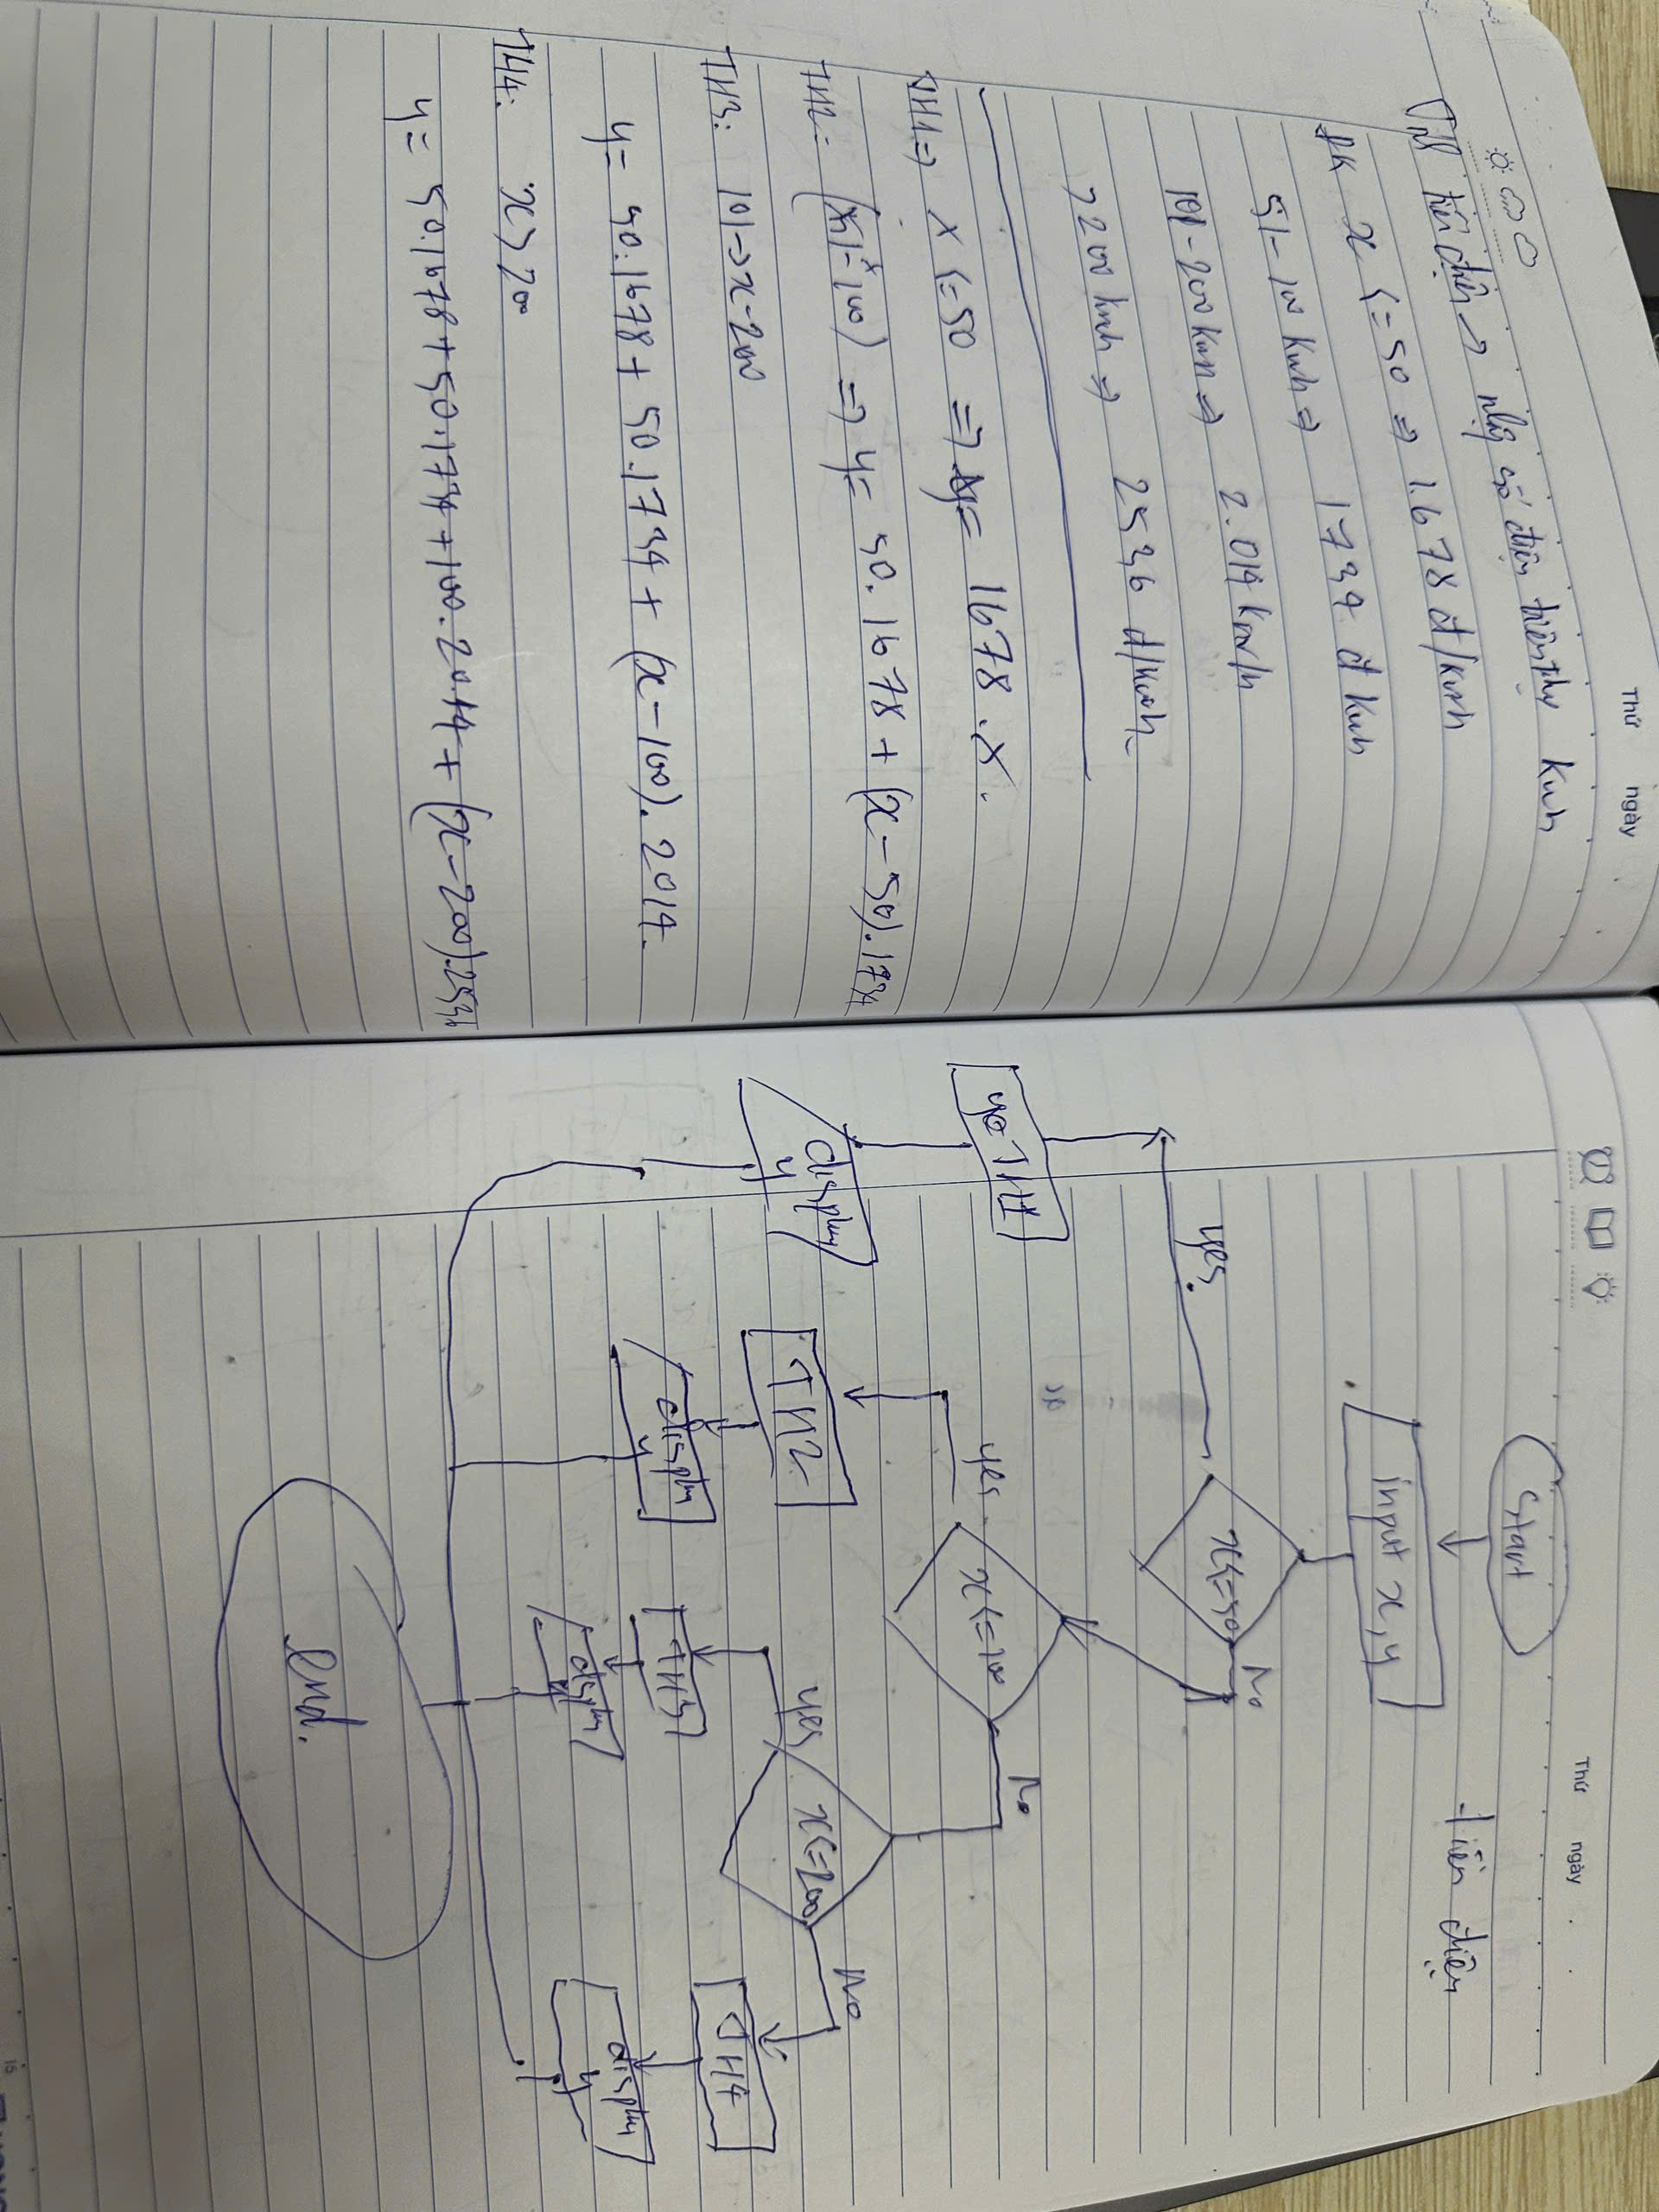 Thứ ngày
Tính tiền điện → nhập số điện tiêu thụ kwh
đk x <= 50 ⇒ 1.678 đ/kwh
51-100 kwh ⇒ 1734 đ kwh
101-200 kwh ⇒ 2.014 kw/h
>200 kwh ⇒ 2536 đ/kwh
TH1 ⇒ x <= 50 ⇒ y = 1678.x.
TH2: ⇒ y = 50.1678 + (x-50).1734
TH3: 101 → x - 200
y = 50.1678 + 50.1734 + (x-100).2014.
TH4: x > 200
y = 50.1678 + 50.1734 + 100.2014 + (x-200).2536
Thứ ngày
tiền điện
Start
input x, y
x <= 50
yes
No
TH1
x <= 100
yes
No
display y
TH2
x <= 200
yes
No
display y
TH3
TH4
display y
display y
End.
15